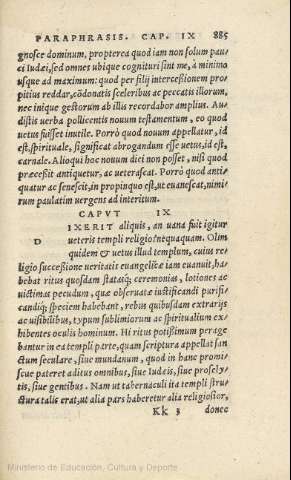 PARAPHRASIS. CAP. IX 885
gnosce dominum, propterea quod iam non solum pau-
ci Iudæi, sed omnes ubique cognituri sint me, à minimo
usque ad maximum: quod per filij intercessionem pro-
pitius reddar, cōdonatis sceleribus ac peccatis illorum,
nec inique gestorum ab illis recordabor amplius. Au-
distis uerba pollicentis nouum testamentum, eo quod
uetus fuisset inutile. Porrò quod nouum appellatur, id
est, spirituale, significat abrogandum esse uetus, id est,
carnale. Alioqui hoc nouum dici non posset, nisi quod
præcessit antiquetur, ac ueterascat. Porrò quod anti-
quatur ac senescit, in propinquo est, ut euanescat, nimi-
rum paulatim uergens ad interitum.
CAPVT IX
D IXERIT aliquis, an uana fuit igitur
ueteris templi religio? nequaquam. Olim
quidem & uetus illud templum, cuius re-
ligio successione ueritatis euangelicæ iam euanuit, ha-
bebat ritus quosdam statasq; ceremonias, lotiones ac
uictimas pecudum, quæ obseruatæ iustificandi purifi-
candiq; speciem habebant, rebus quibusdam extrarijs
ac uisibilibus, typum sublimiorum ac spiritualium ex-
hibentes oculis hominum. Hi ritus potissimum perage
bantur in ea templi parte, quam scriptura appellat san-
ctum seculare, siue mundanum, quod in hanc promi-
scue pateret aditus omnibus, siue Iudæis, siue prosely-
tis, siue gentibus. Nam ut tabernaculi ita templi stru-
ctura talis erat, ut alia pars haberetur alia religiosior,
Kk 3 donec
Ministerio de Educación, Cultura y Deporte